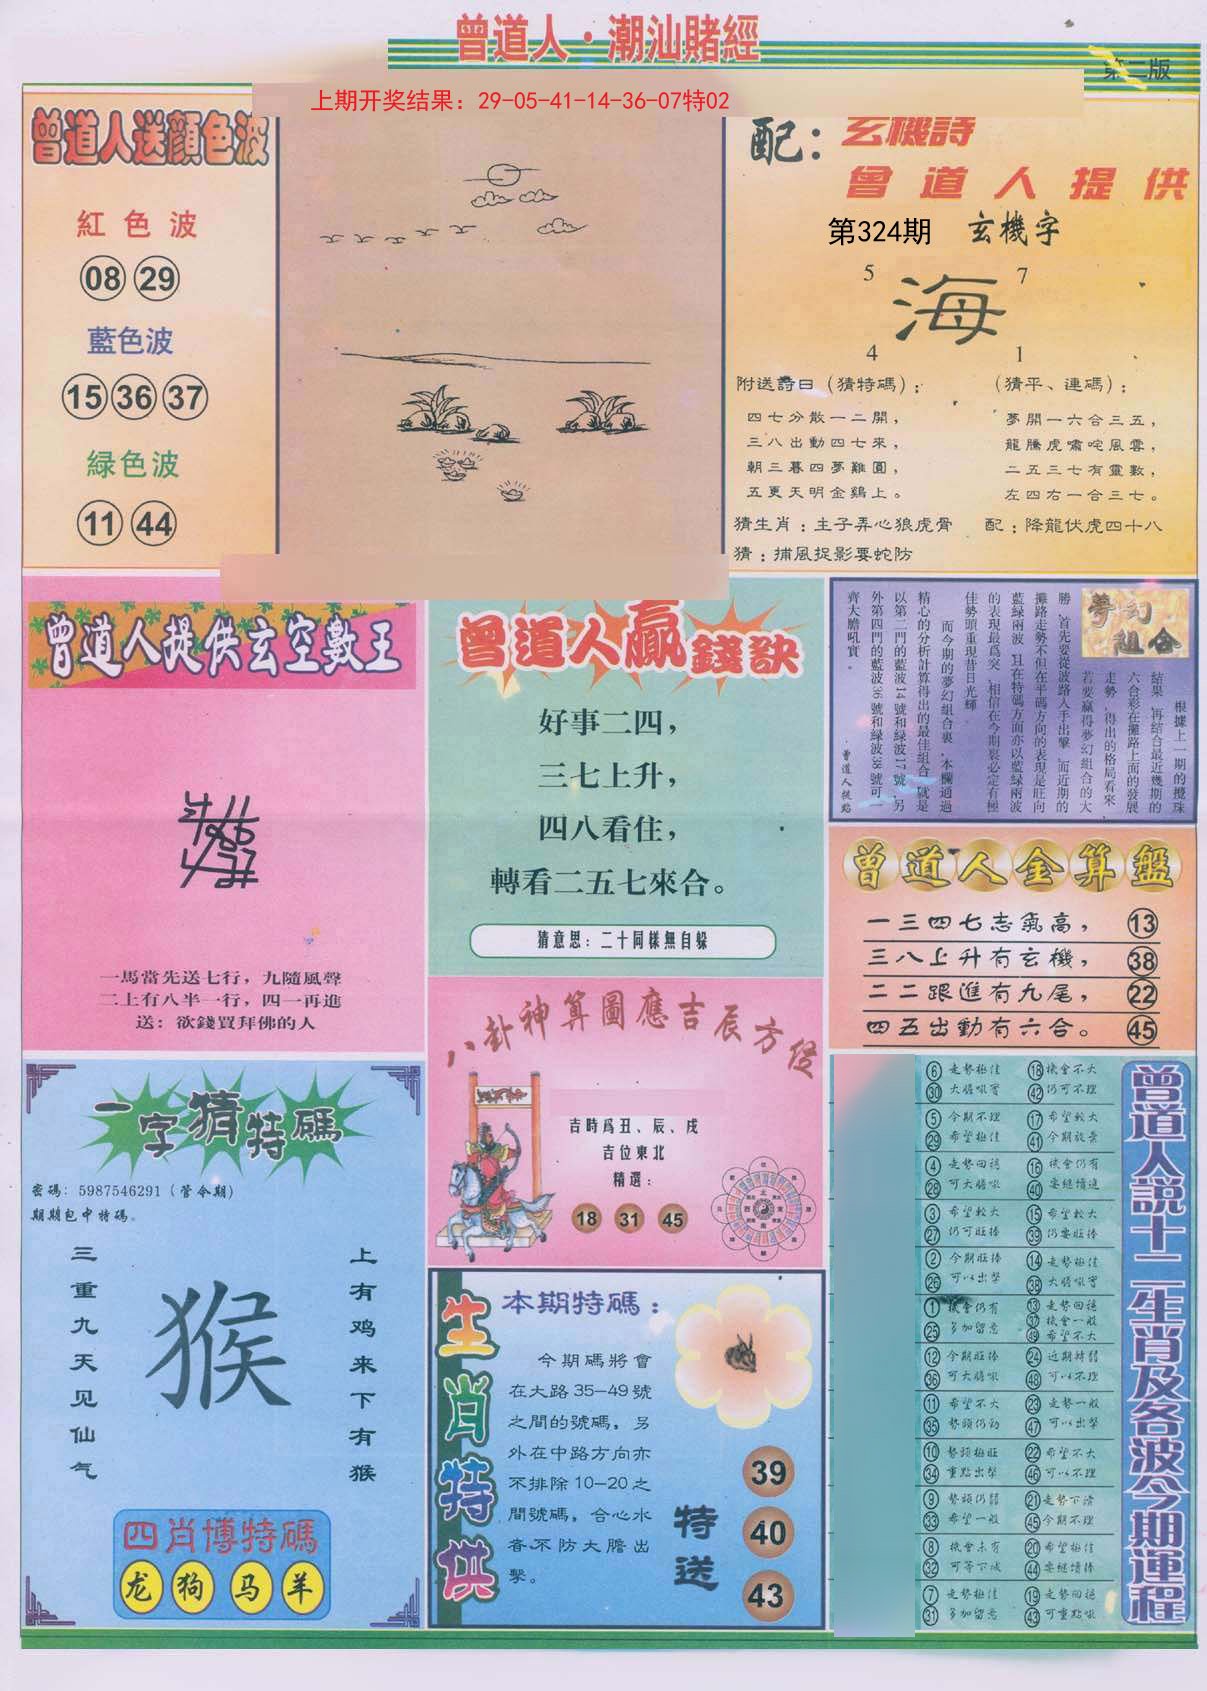 曾道人·潮汕賭經
第二版
上期开奖结果：29-05-41-14-36-07特02
曾道人送顏色波
紅色波
08 29
藍色波
15 36 37
緑色波
11 44
配：
玄機詩
曾道人提供
第324期
玄機字
5 7
海
4 1
附送詩日（猜特碼）：
四七分散一二開，
三八出動四七來，
朝三暮四夢難圓，
五更天明金鷄上。
（猜平、連碼）：
夢開一六合三五，
龍騰虎嘯咤風雲，
二五三七有靈數，
左四右一合三七。
猜生肖：主子弄心狼虎骨
配：降龍伏虎四十八
猜：捕風捉影要蛇防
曾道人提供玄空數王
一馬當先送七行，九隨風聲
二上有八半一行，四一再進
送：欲錢買拜佛的人
曾道人贏錢訣
好事二四，
三七上升，
四八看住，
轉看二五七來合。
猜意思：二十同樣無自躲
夢幻組合
根據上一期的攪珠
結果，再結合最近幾期的
六合彩在攤路上面的發展
走勢，得出的格局看來，
若要贏得夢幻組合的大
勝，首先要從波路入手出擊，而近期的
攤路走勢不但在平碼方向的表現是旺向
藍緑兩波，且在特碼方面亦以藍緑兩波
的表現最爲突，相信在今期裏必定有極
佳勢頭重現昔日光輝。
而今期的夢幻組合裏，本欄通過
精心的分析計算得出的最佳組合號是
以第二門的藍波14號和緑波17號，另
外第四門的藍波36號和緑波38號可
齊大膽吼實。
曾道人金算盤
一三四七志氣高， 13
三八上升有玄機， 38
二二跟進有九尾， 22
四五出動有六合。 45
一字猜特碼
密碼：5987546291（管令期）
期期包中特碼。
三重九天见仙气
猴
上有鸡来下有猴
四肖博特碼
龙 狗 马 羊
八卦神算圖應吉辰方位
吉時爲丑、辰、戌
吉位東北
精選：
18 31 45
生肖特供
本期特碼：
今期碼將會
在大路35—49號
之間的號碼，另
外在中路方向亦
不排除10—20之
間號碼，合心水
者不防大膽出
擊。
特送
39
40
43
曾道人説十二生肖及各波今期運程
6 走勢極佳 18 機會不大
30 大膽吼實 42 仍可不理
5 今期不理 17 希望較大
29 希望極佳 41 今期放棄
4 走勢回穩 16 機會仍有
28 可大膽吼 40 要繼續進
3 希望較大 15 希望較大
27 仍可旺捧 39 仍要旺捧
2 今期旺捧 14 走勢極佳
26 可以出擊 38 大膽吼實
1 機會仍有 13 走勢回穩
37 機會一般
25 多加留意 49 希望不大
12 今期旺捧 24 近期轉弱
36 可大膽吼 48 可以不理
11 希望不大 23 走勢一般
35 勢頭仍勁 47 可以出擊
10 勢頭極旺 22 希望不大
34 重點出擊 46 可以不理
9 勢頭仍弱 21 走勢下滑
33 希望一般 45 今期不理
8 機會未有 20 希望極佳
32 可等下城 44 要繼續捧
7 走勢極佳 19 走勢回穩
31 多加留意 43 可重點吼